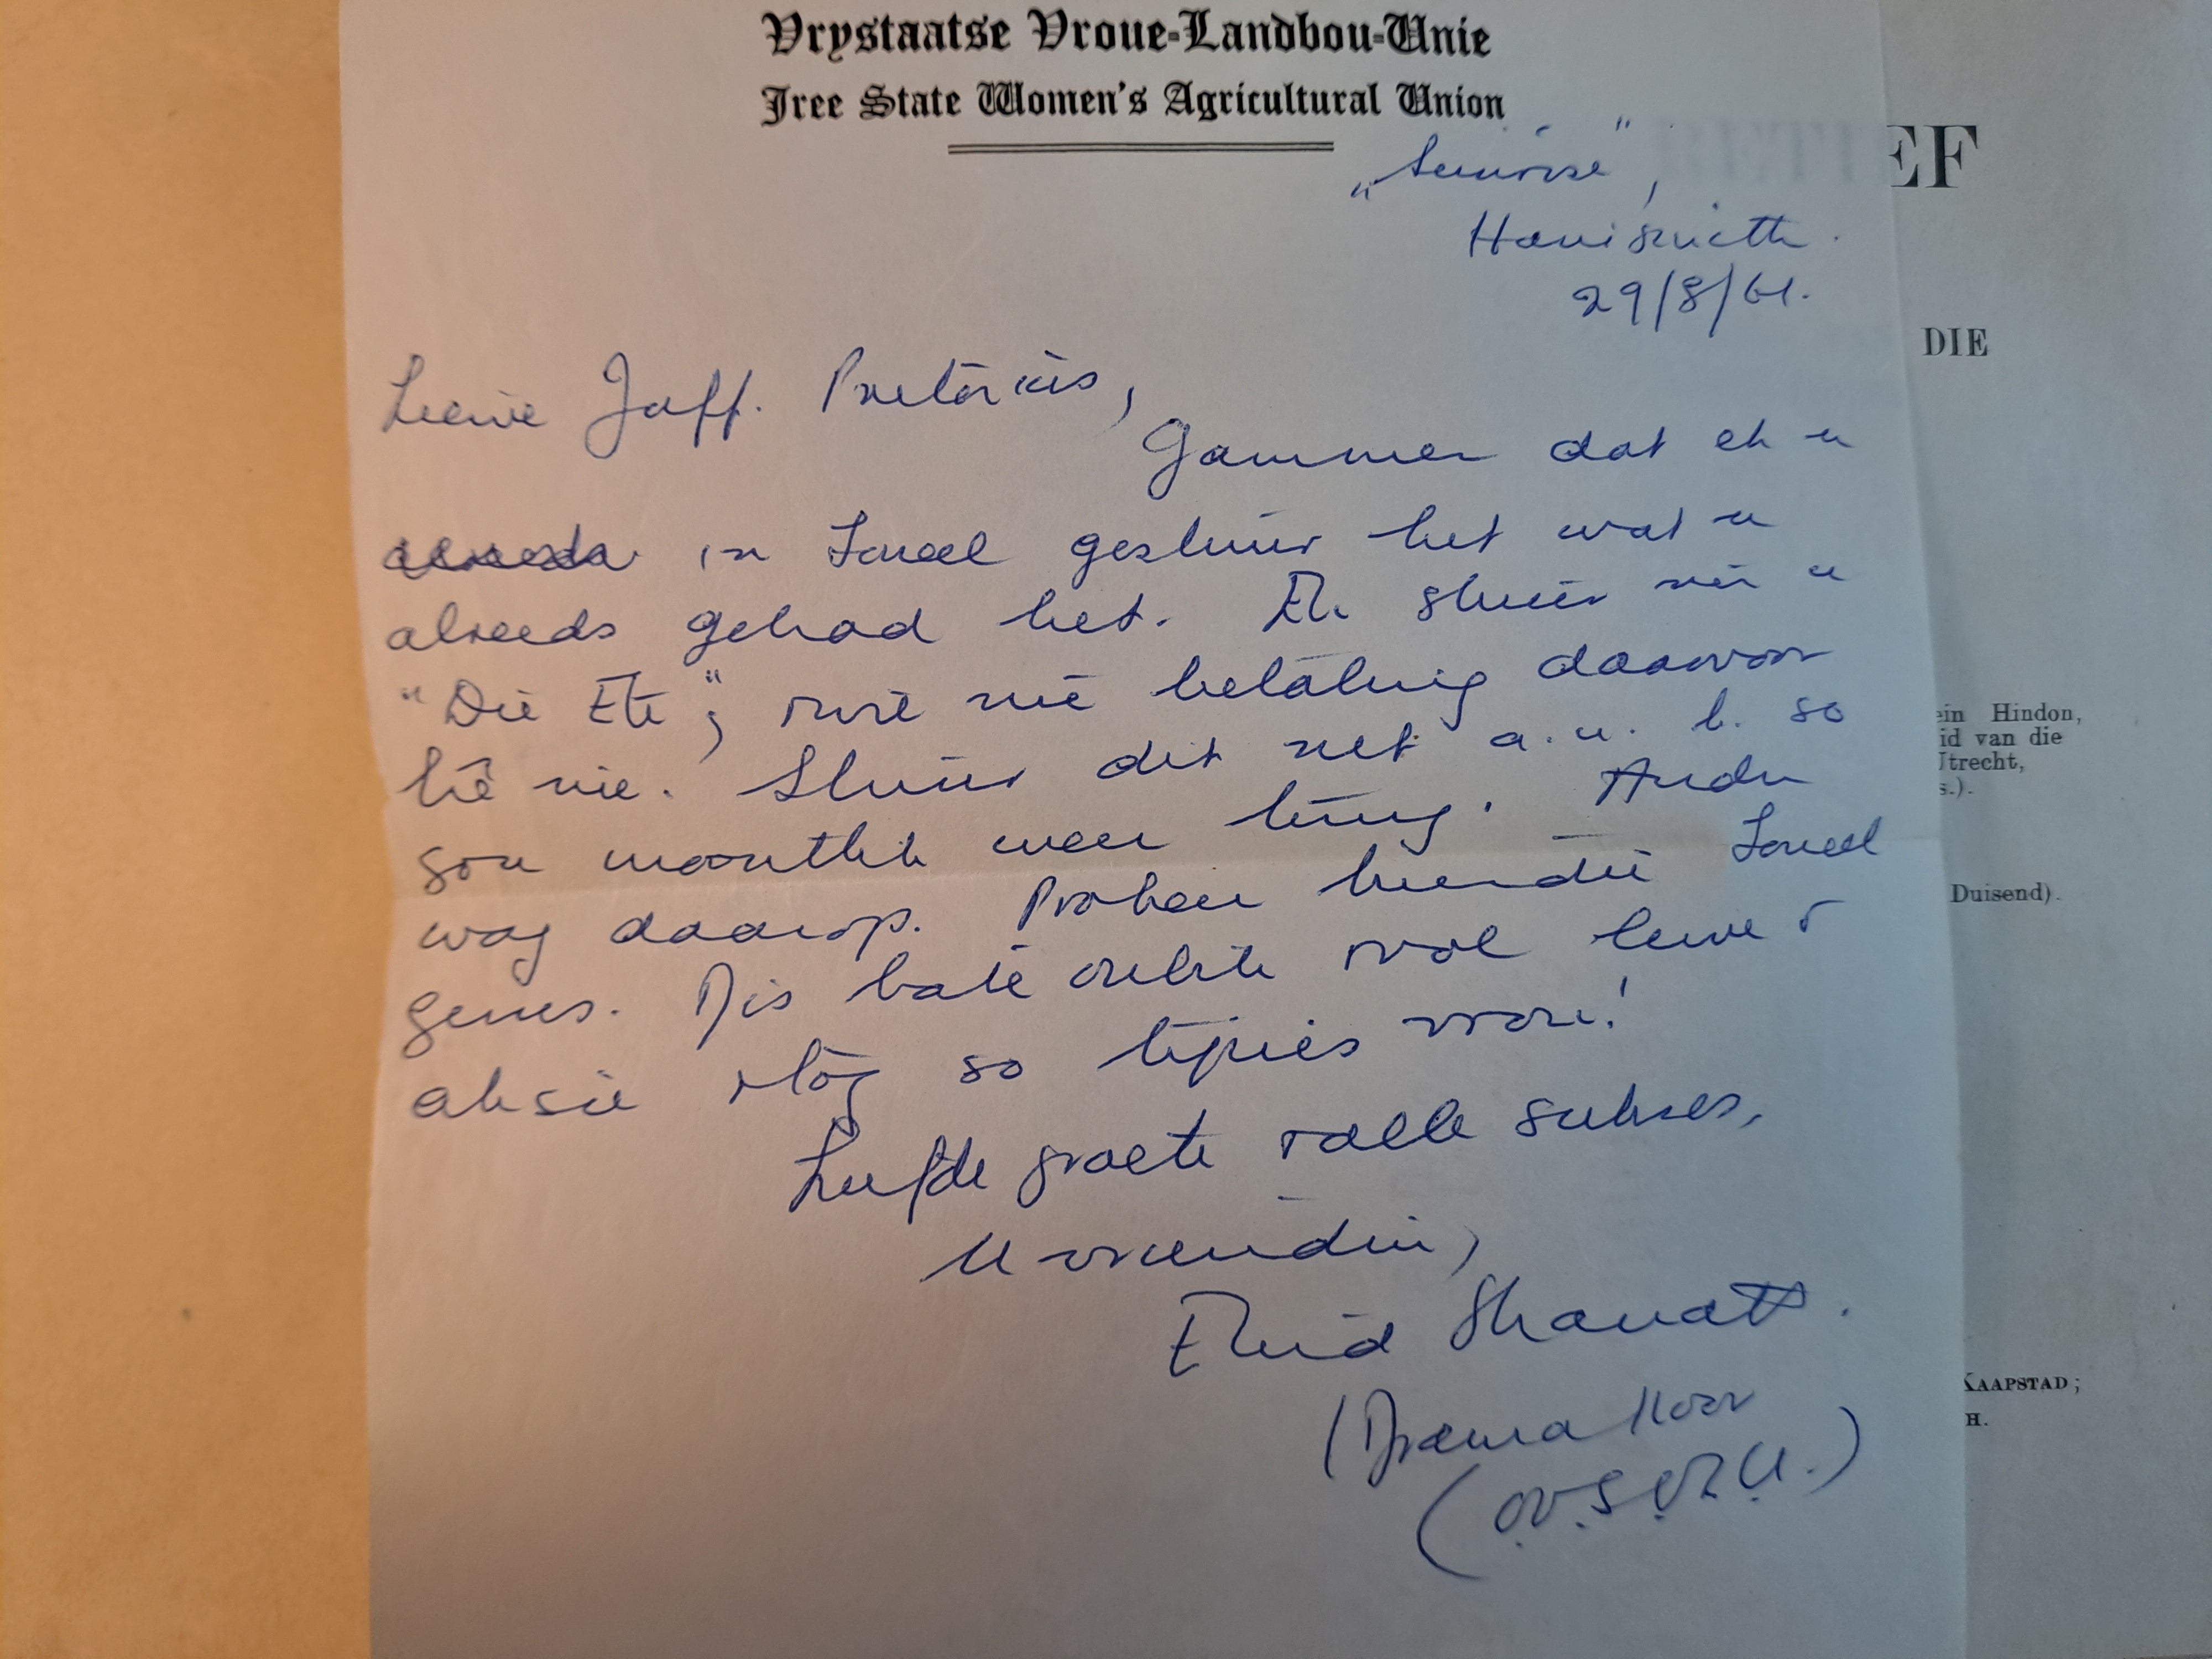 Vrystaatse Vroue-Landbou-Unie
Free State Women's Agricultural Union
„Sunrise",
Harrismith.
29/8/61.
Liewe Juff. Pretorius,
Jammer dat ek u
'n Toneel gestuur het wat u
alreeds gehad het. Ek stuur vir u
"Die Ete"; wil nie betaling daarvoor
hê nie. Stuur dit net a.u.b. so
gou moontlik weer terug. Ander
wag daarop. Probeer hierdie Toneel
gerus. Dis baie oulik vol lewe &
aksie & tog so tipies vrou!
Liefde groete & alle sukses,
U vriendin,
Enid
(Drama
(O.V.S.V.L.U.)
EF
DIE
ein Hindon,
id van die
Utrecht,
s.).
Duisend).
KAAPSTAD;
H.